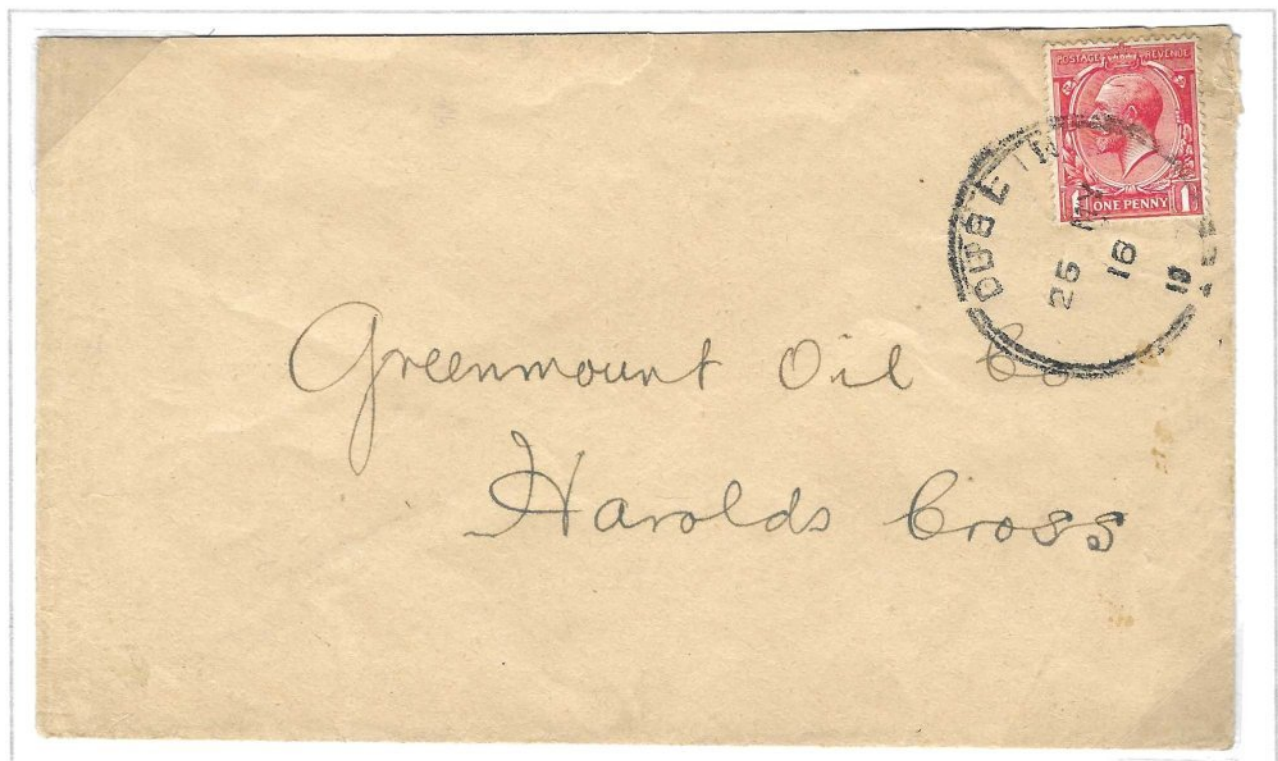 POSTAGE REVENUE
1 ONE PENNY 1
DUBLIN
26 MY
16
Greenmount Oil Co
Harolds Cross